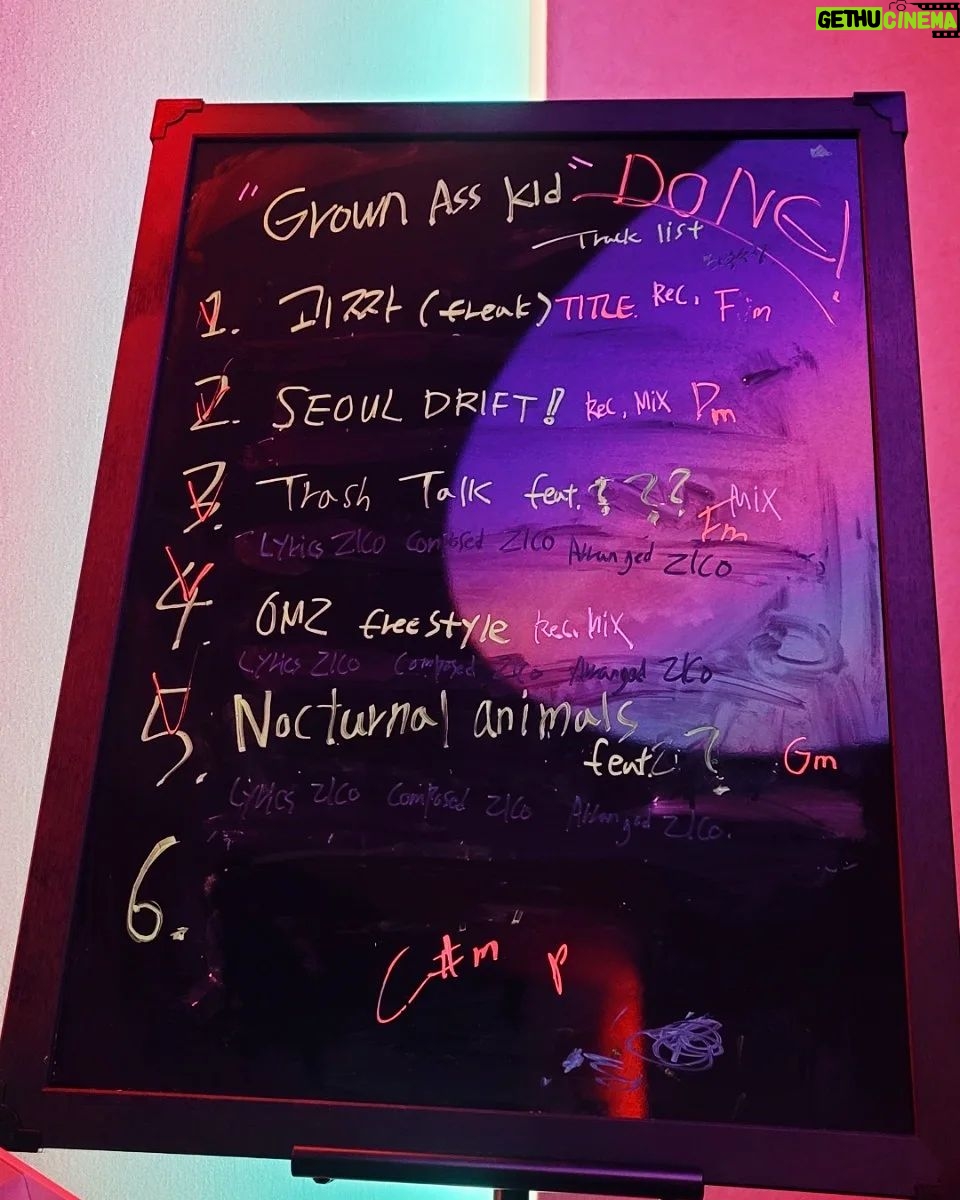 GETHUCINEMA
"Grown Ass Kid" DONE!
Track list
1. 괴짜 (freak) TITLE. Rec. Fm
2. SEOUL DRIFT!! Rec, Mix Dm
3. Trash Talk feat. ??? Mix
Fm
Lyrics ZICO Composed ZICO Arranged ZICO
4. OMZ freestyle Rec. Mix
Lyrics ZICO Composed ZICO Arranged ZICO
5. Nocturnal animals
feat. ? Gm
Lyrics ZICO Composed ZICO Arranged ZICO.
6.
C#m